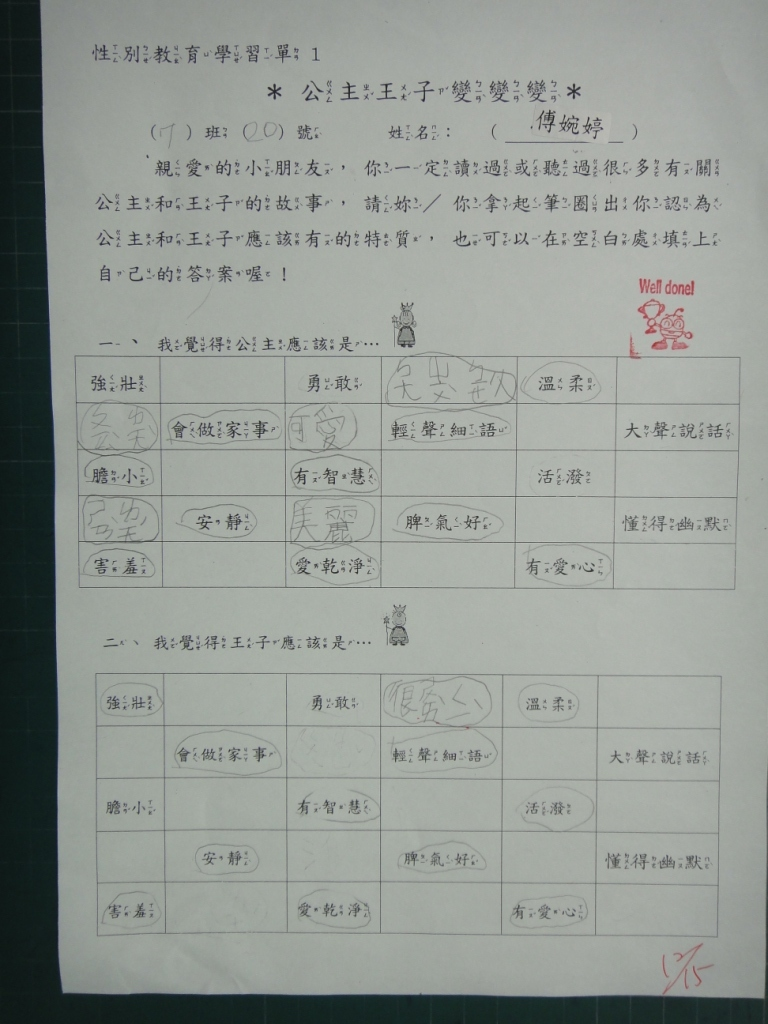 性別教育學習單 1
* 公主王子變變變 *
(7) 班 (20) 號 姓名： ( 傅婉婷 )
親愛的小朋友，你一定讀過或聽過很多有關
公主和王子的故事，請妳／你拿起筆圈出你認為
公主和王子應該有的特質，也可以在空白處填上
自己的答案喔！
Well done!
一、 我覺得公主應該是…
強壯 勇敢 溫柔
會做家事 可愛 輕聲細語 大聲說話
膽小 有智慧 活潑
安靜 美麗 脾氣好 懂得幽默
害羞 愛乾淨 有愛心
二、 我覺得王子應該是…
強壯 勇敢 溫柔
會做家事 輕聲細語 大聲說話
膽小 有智慧 活潑
安靜 脾氣好 懂得幽默
害羞 愛乾淨 有愛心
12/15